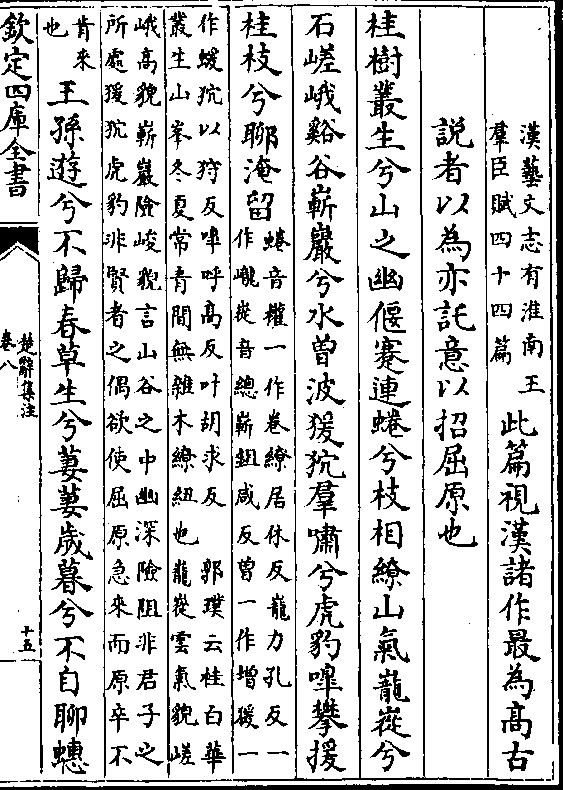 漢藝文志有淮南王
羣臣賦四十四篇
此篇視漢諸作最為高古
說者以為亦託意以招屈原也
桂樹叢生兮山之幽偃蹇連蜷兮枝相繚山氣巃嵸兮
石嵯峨谿谷嶄巖兮水曾波猨狖羣嘯兮虎豹嘷攀援
桂枝兮聊淹留
蜷音權一作卷繚居休反巃力孔反一
作巄嵸音總嶄鉏咸反曾一作增猨一
作蝯狖以狩反嘷呼高反叶胡求反　郭璞云桂白華
叢生山峯冬夏常青間無雜木繚紐也巃嵸雲氣貌嵯
峨高貌嶄巖險峻貌言山谷之中幽深險阻非君子之
所處猨狖虎豹非賢者之偶欲使屈原急來而原卒不
肯來
也
王孫遊兮不歸春草生兮萋萋歲暮兮不自聊蟪
欽定四庫全書
楚辭集注
卷八
十五